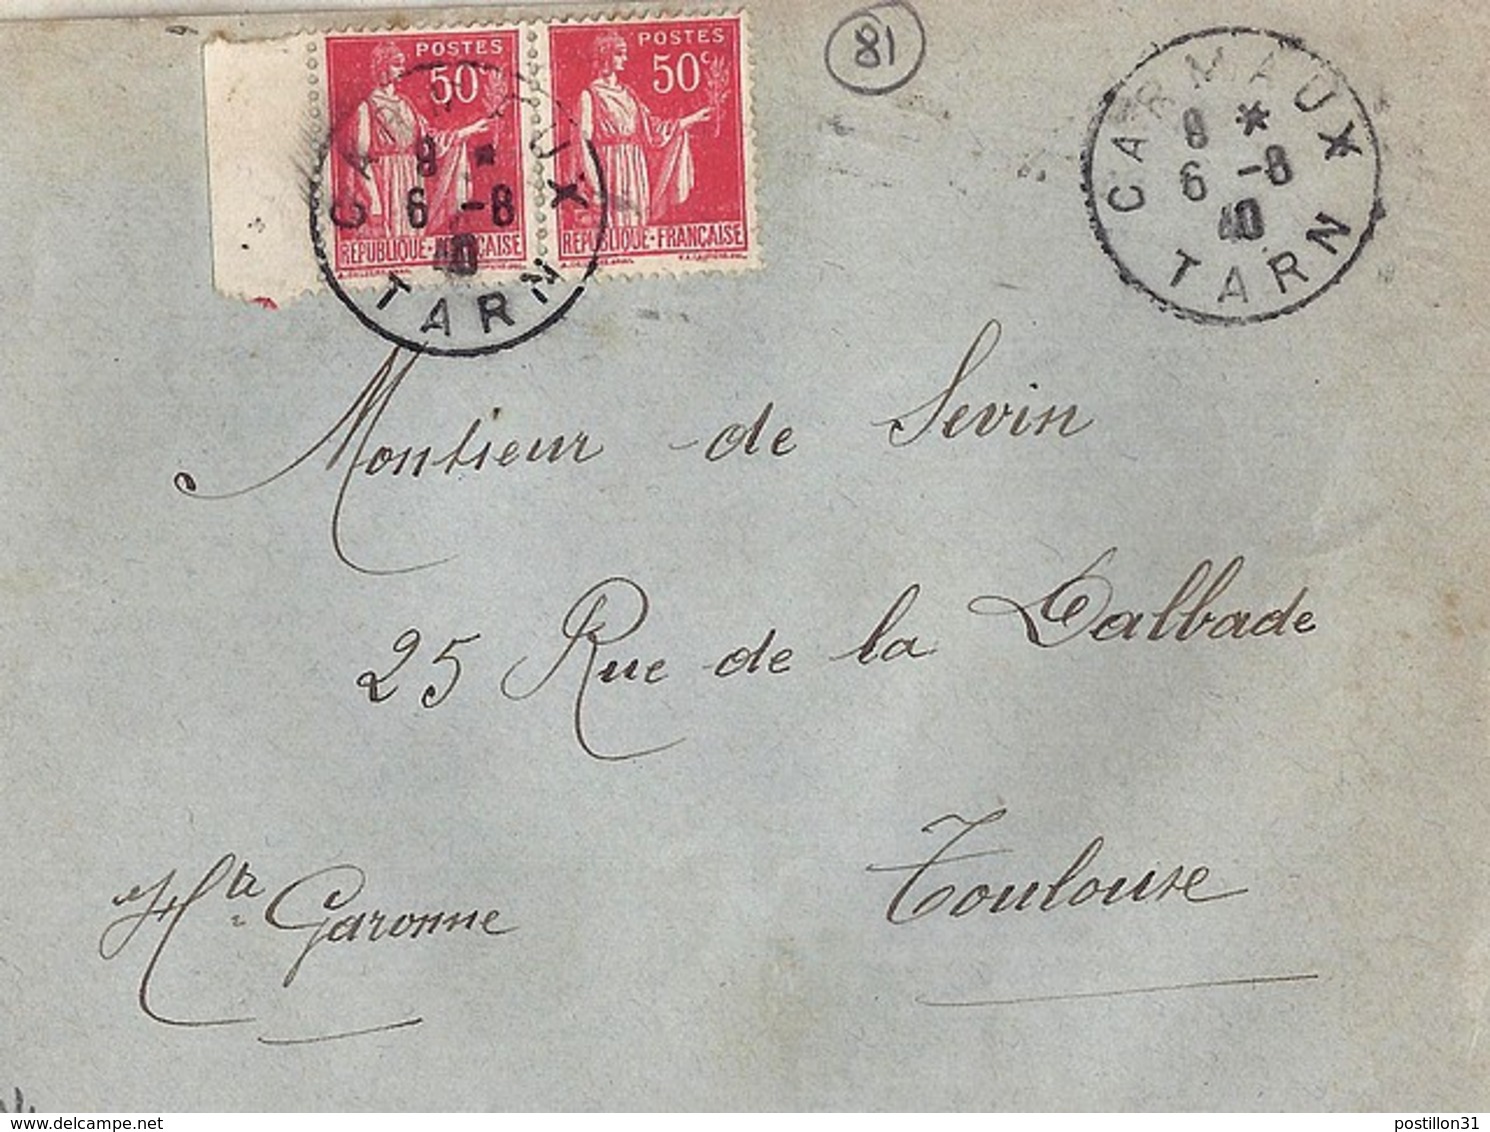 POSTES
50c
RÉPUBLIQUE-FRANÇAISE
POSTES
50c
RÉPUBLIQUE-FRANÇAISE
CARMAUX
8 *
6 -8
40
TARN
81
CARMAUX
8 *
6 -8
40
TARN
Monsieur de Sevin
25 Rue de la Dalbade
Toulouse
Hte Garonne
postillon31